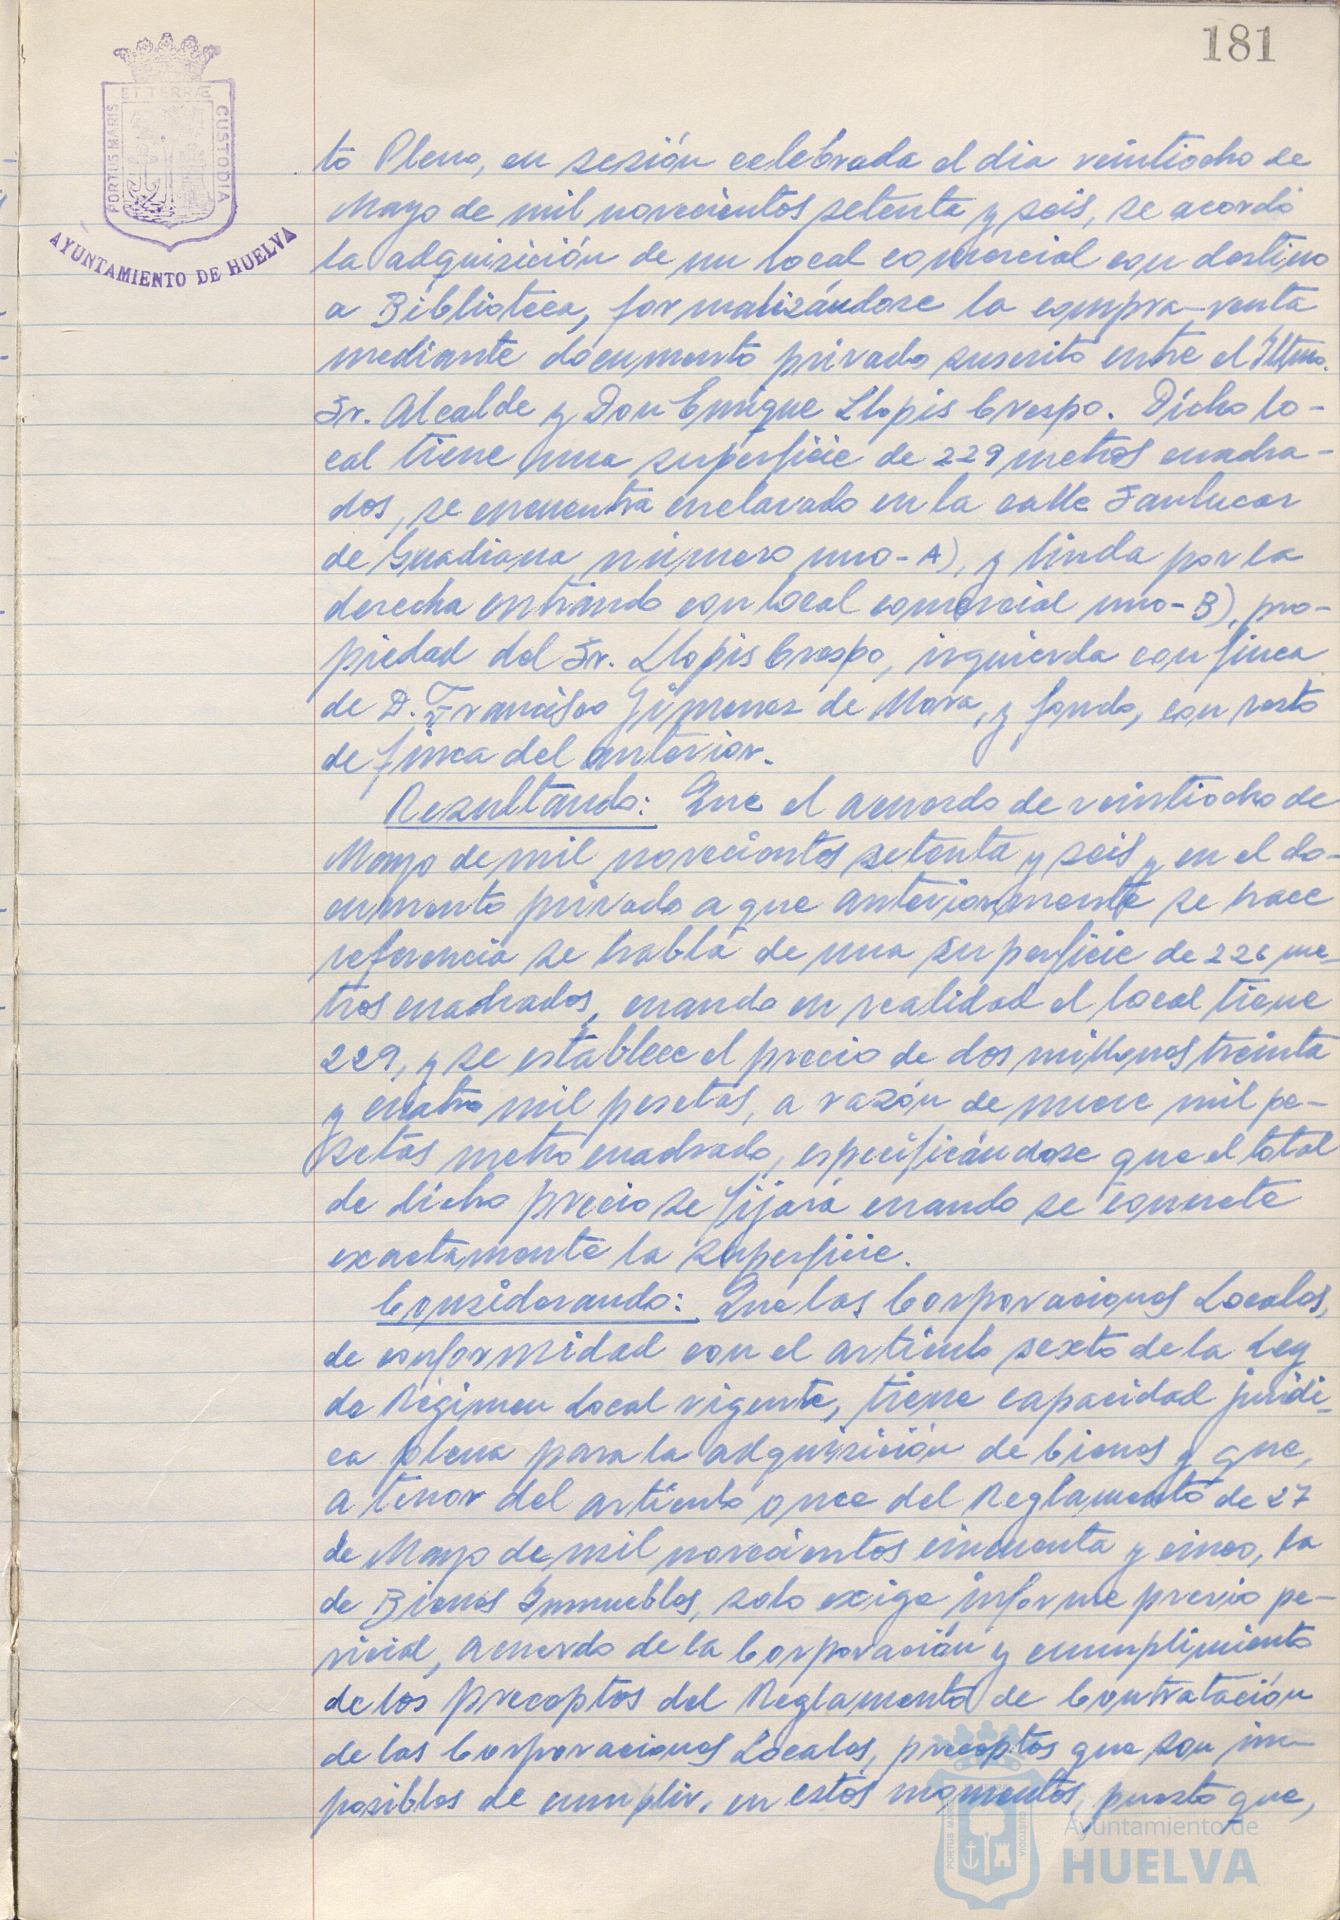 181
ET TERRÆ
PORTUS MARIS
CUSTODIA
AYUNTAMIENTO DE HUELVA
to Pleno, en sesión celebrada el dia veintiocho de
Mayo de mil novecientos setenta y seis, se acordó
la adquisición de un local comercial con destino
a Biblioteca, formalizándose la compra-venta
mediante documento privado suscrito entre el Iltmo.
Sr. Alcalde y Don Enrique Llopis Crespo. Dicho lo-
cal tiene una superficie de 229 metros cuadra-
dos, se encuentra enclavado en la calle Sanlucar
de Guadiana número uno-A), y linda por la
derecha entrando con local comercial uno-B), pro-
piedad del Sr. Llopis Crespo, izquierda con finca
de D. Francisco Jimenez de Mora, y fondo, con resto
de finca del anterior.
Resultando: Que el acuerdo de veintiocho de
Mayo de mil novecientos setenta y seis y en el do-
cumento privado a que anteriormente se hace
referencia se habla de una superficie de 226 me-
tros cuadrados, cuando en realidad el local tiene
229, y se establece el precio de dos millones treinta
y cuatro mil pesetas, a razón de nueve mil pe-
setas metro cuadrado, especificándose que el total
de dicho precio se fijará cuando se concrete
exactamente la superficie.
Considerando: Que las Corporaciones Locales,
de conformidad con el articulo sexto de la Ley
de Régimen Local vigente, tiene capacidad juridi-
ca plena para la adquisición de bienes y que,
a tenor del articulo once del Reglamento de 27
de Mayo de mil novecientos cincuenta y cinco, la
de Bienes Inmuebles, solo exige informe previo pe-
ricial, acuerdo de la Corporación y cumplimiento
de los preceptos del Reglamento de Contratación
de las Corporaciones Locales, preceptos que son im-
posibles de cumplir, en estos momentos, puesto que,
PORTUS MARIS
CUSTODIA
Ayuntamiento de
HUELVA